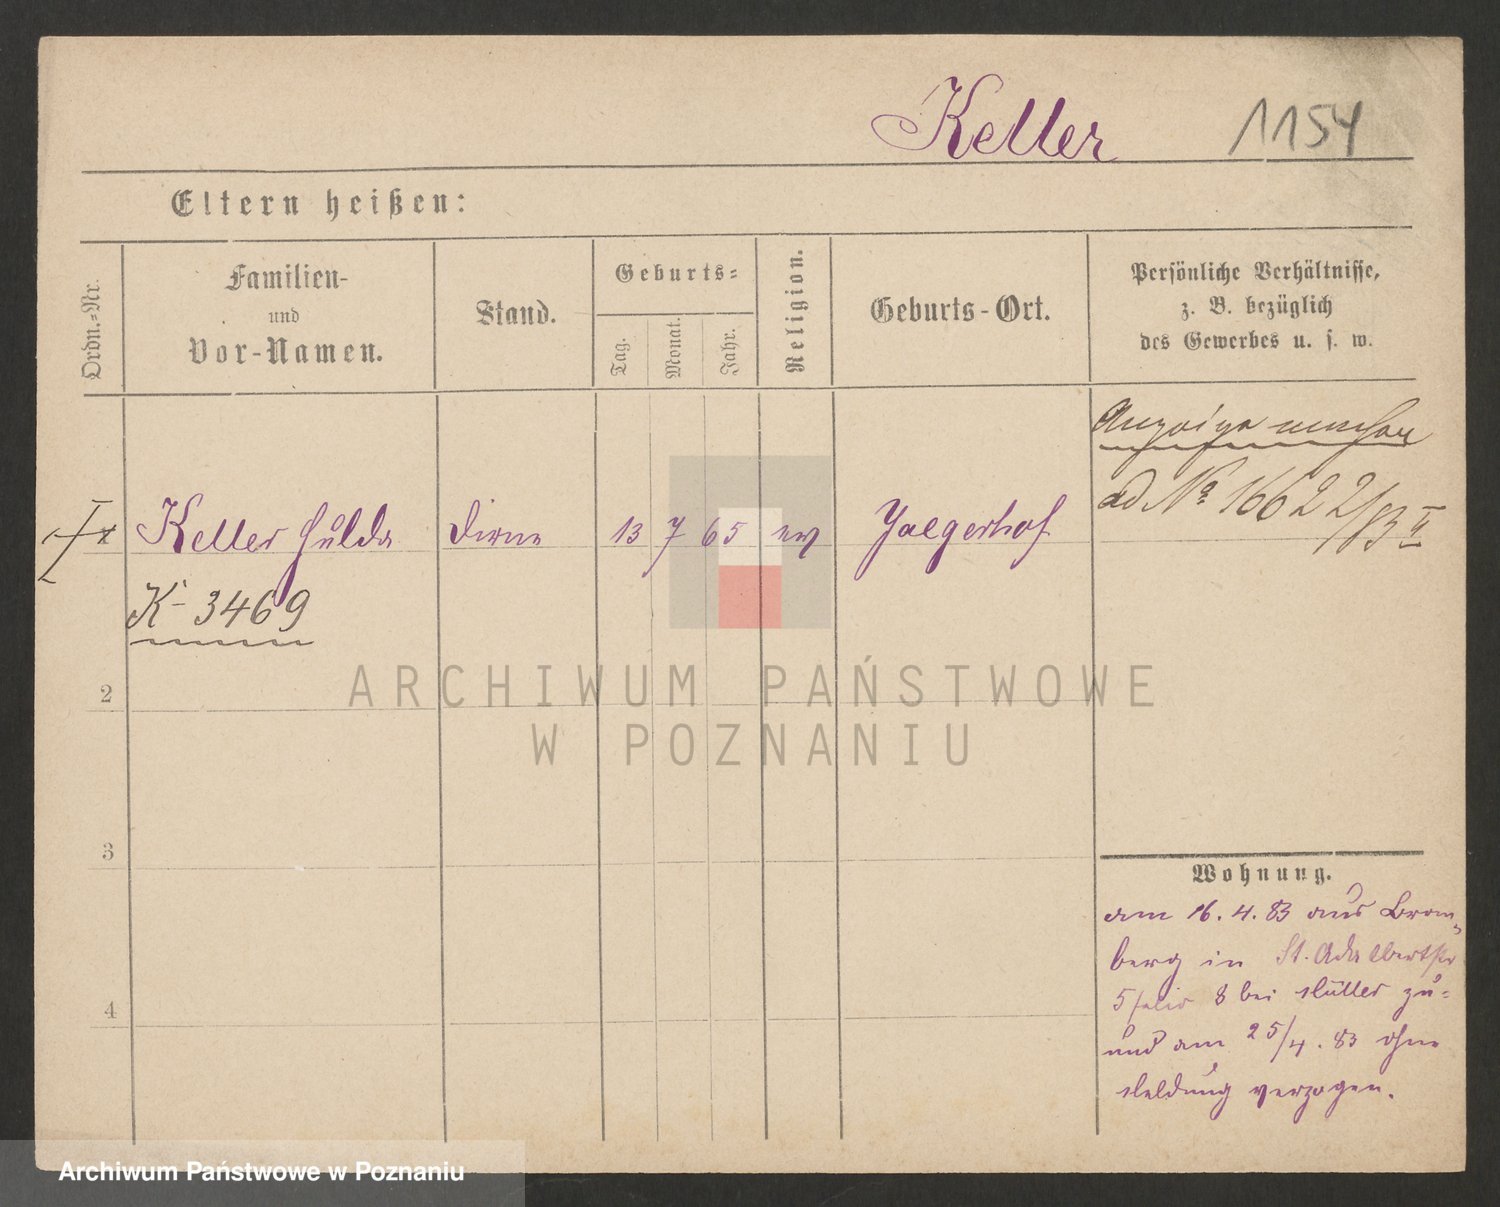 Keller 1154
Eltern heißen:
Ordn.-Nr.
Familien-
und
Vor-Namen.
Stand.
Geburts-
Tag.
Monat.
Jahr.
Religion.
Geburts-Ort.
Persönliche Verhältnisse,
z. B. bezüglich
des Gewerbes u. s. w.
Anzeige
ad No 16622/83 II
Keller Hulda Dirne 13 7 65 ev Jaegerhof
K-3469
2
3
4
Wohnung.
am 16. 4. 83 aus Brom-
berg in St. Adalbertstr
5 8 bei Müller zu-
und am 25/4. 83 ohne
Meldung verzogen.
ARCHIWUM PAŃSTWOWE
W POZNANIU
Archiwum Państwowe w Poznaniu